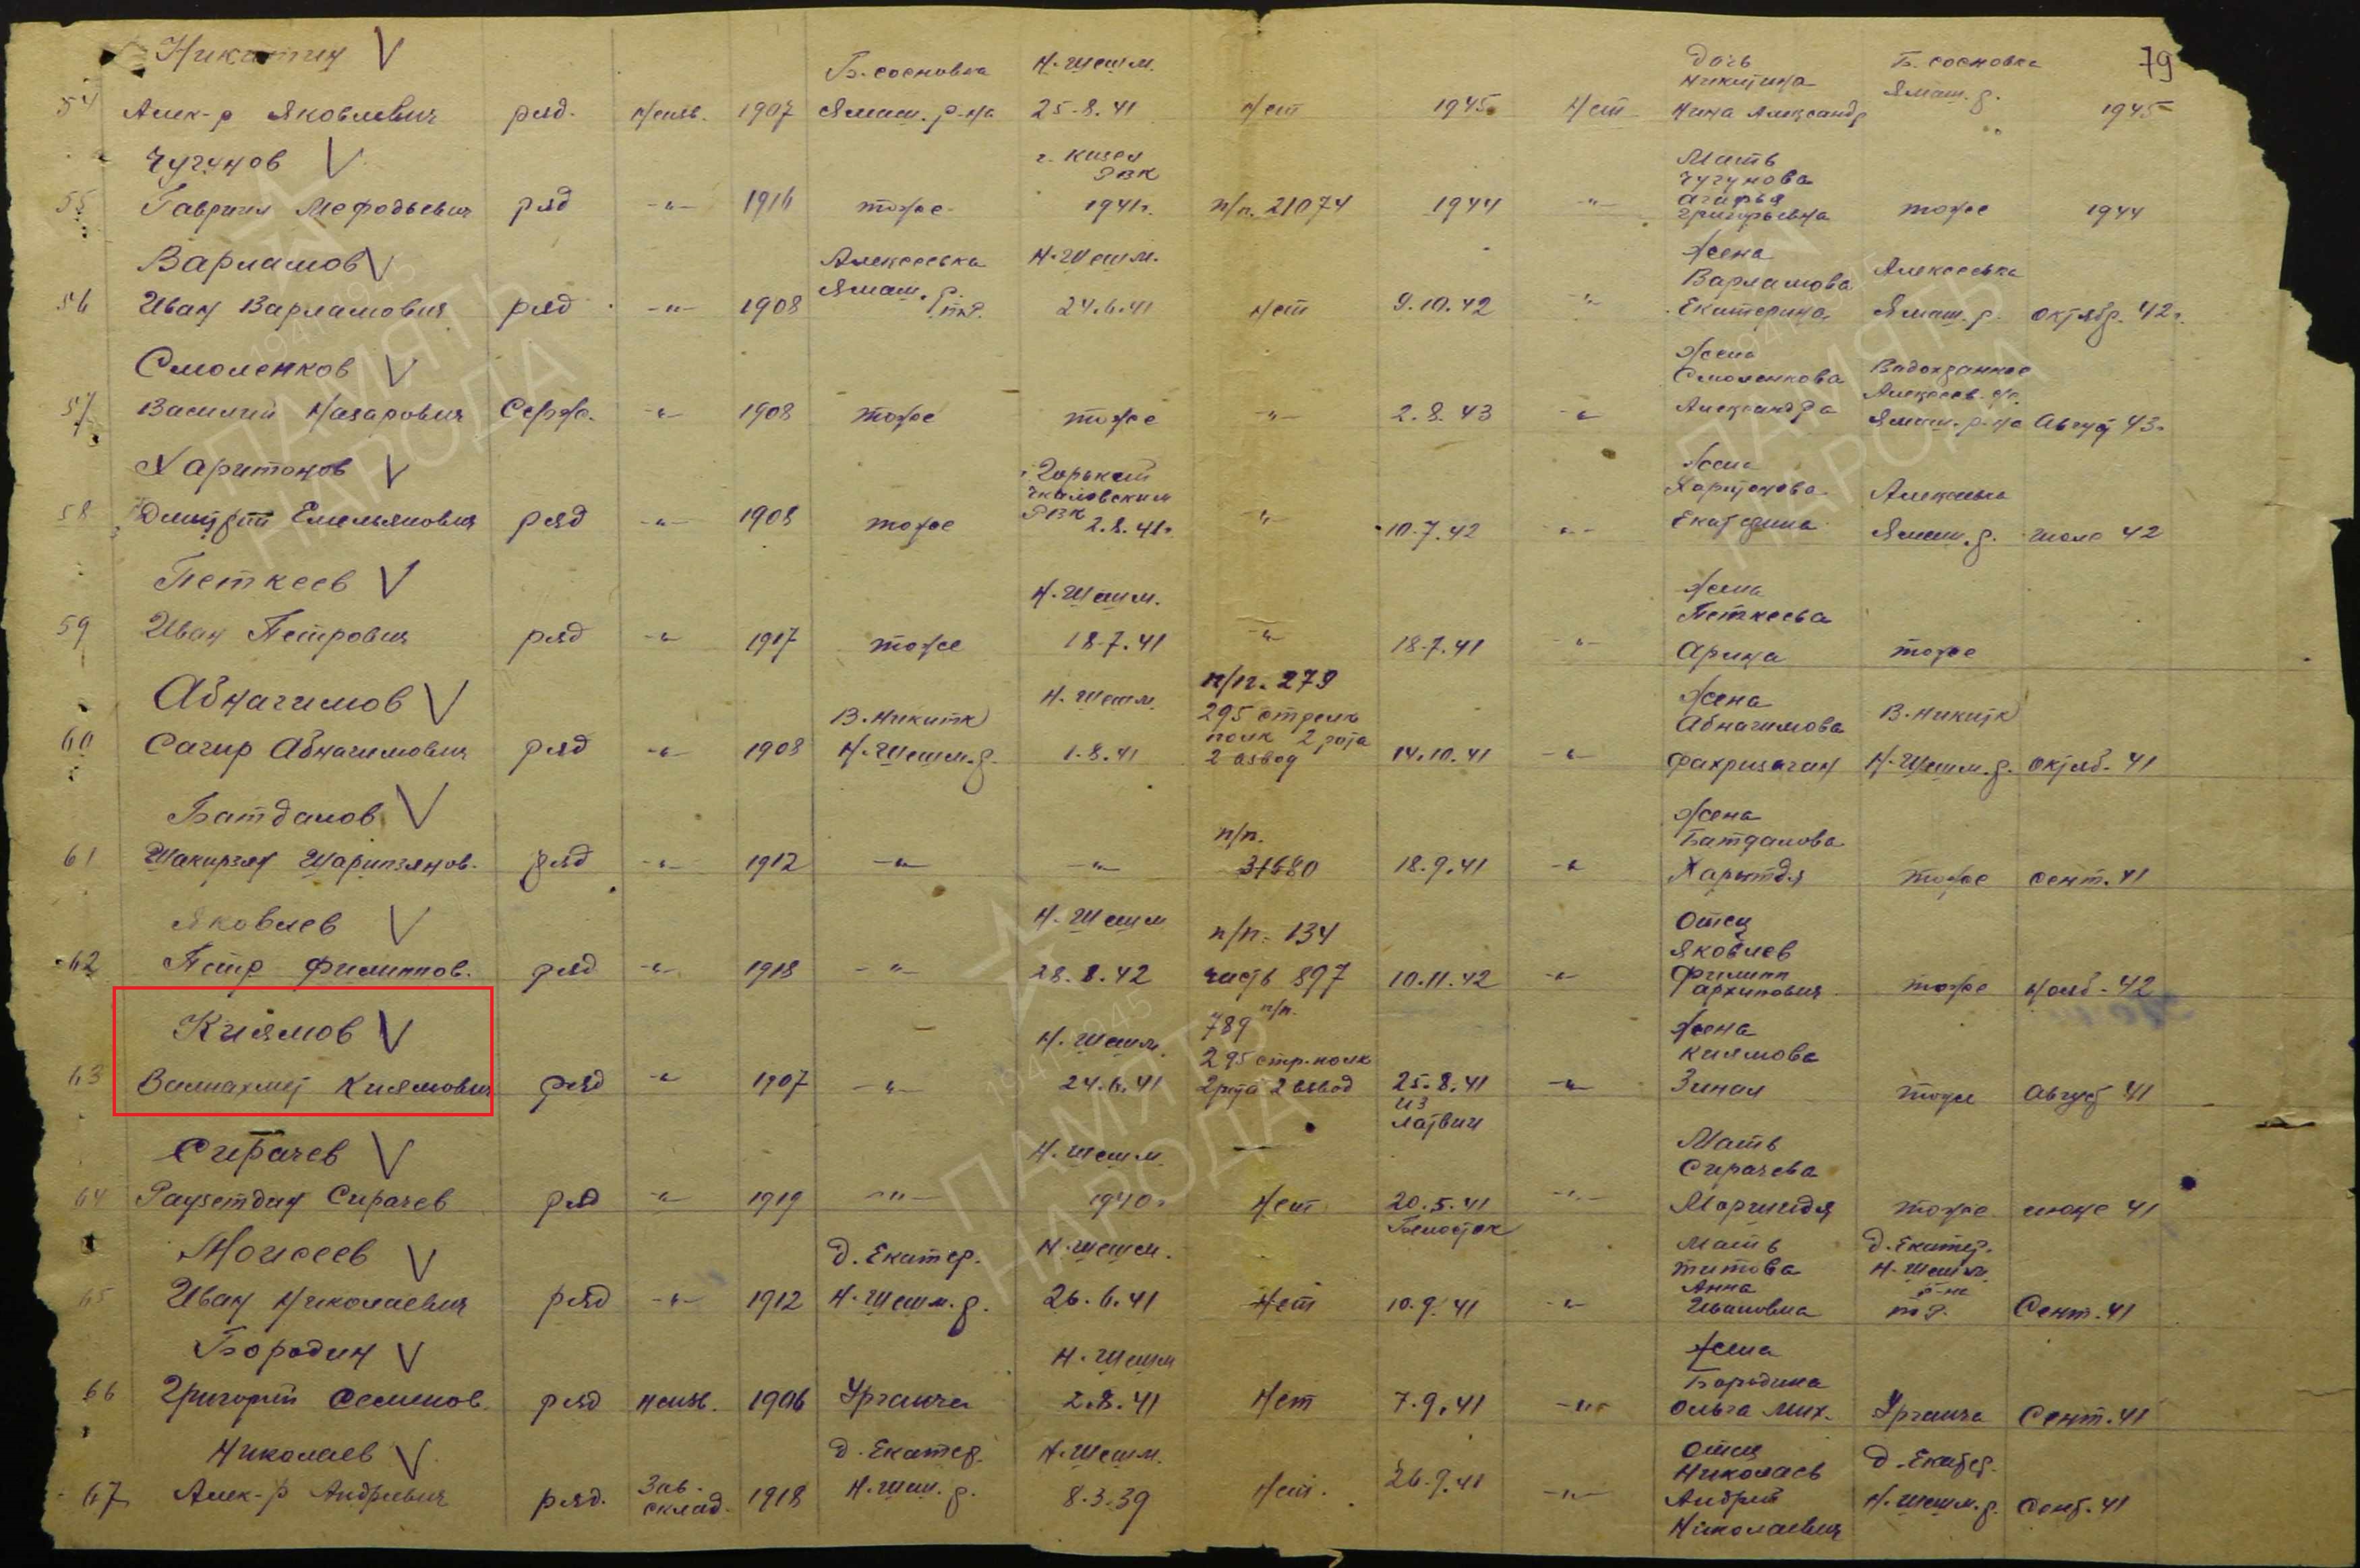 79
Никитин V
54 Алек-р Яковлевич ряд. неизв. 1907 Б. сосновка Ямаш. р-на Н-Шешм. 25-8.41 Нет 1945 Нет Дочь Никитина Нина Александр Б. сосновка Ямаш. р. 1945
Чугунов V
55 Гавриил Мефодьевич ряд -"- 1916 тоже г. Кизел РВК 1941г. п/п. 21074 1944 -"- Мать Чугунова Агафья Григорьевна тоже 1944
Варламов V
56 Иван Варламович ряд -"- 1908 Алексеевка Ямаш. р. Н-Шешм. 24.6.41 Нет 9.10.42 -"- Жена Варламова Екатерина Алексеевка Ямаш. р. октябр. 42г.
Смоленков V
57 Василий Назарович Серж. -"- 1908 тоже тоже -"- 2.8.43 -"- Жена Смоленкова Александра Ямаш. р-на Август 43г.
Харитонов V
58 Дмитрий Емельянович ряд -"- 1908 тоже г Горький Чкаловским РВК 2.8.41г. -"- 10.7.42 -"- Жена Харитонова Екатерина Ямаш. р. июле 42
Петкеев V
59 Иван Петрович ряд -"- 1917 тоже Н-Шешм. 18-7.41 -"- 18-7.41 -"- Жена Петкеева Арина тоже
Абнагимов V
60 Сагир Абнагимович ряд -"- 1908 В. Никитк Н-Шешм. р. Н-Шешм. 1.8.41 п/п. 279 295 стрелк полк 2 рота 2 взвод 14.10.41 -"- Жена Абнагимова Фахризиган В. Никитк Н-Шешм. р. октяб. 41
Батдалов V
61 Шакирзян Шарипзянов. ряд -"- 1912 -"- -"- п/п. 31680 18.9.41 -"- Жена Батдалова тоже сент. 41
Яковлев V
62 Петр Филиппов. ряд -"- 1918 -"- Н-Шешм 28.8.42 п/п. 134 часть 897 10.11.42 -"- Отец Яковлев Филипп Архипович тоже нояб. 42
Киямов V
63 Валиахмет Киямович ряд -"- 1907 -"- Н-Шешм. 24.6.41 789 п/п. 295 стр. полк 2 рота 2 взвод 25.8.41 из Латвии -"- Жена Киямова Зиная тоже Август 41
Сирачев V
64 Раузетдин Сирачев ряд -"- 1919 -"- Н-Шешм. 1940г Нет 20.5.41 Белосток -"- Мать Сирачева тоже июне 41
Моисеев V
65 Иван Николаевич ряд -"- 1912 д. Екатер. Н-Шешм. р. Н-Шешм. 26.6.41 Нет 10.9.41 -"- Мать Титова Анна Ивановна д. Екатер. Н-Шешм. р-на тр. Сент. 41
Бородин V
66 Григорий Семенов. ряд неизв. 1906 Урганча Н-Шешм 2.8.41 Нет 7.9.41 -"- Жена Бородина Ольга Мих. Урганча Сент. 41
Николаев V
67 Алек-р Андреевич ряд. Зав. склад. 1918 д. Екатер. Н-Шеш. р. Н-Шешм. 8.3.39 Нет. 26.9.41 -"- Отец Николаев Андрей Николаевич д. Екатер. Н-Шешм. р. Сент. 41
1941-1945
ПАМЯТЬ
НАРОДА